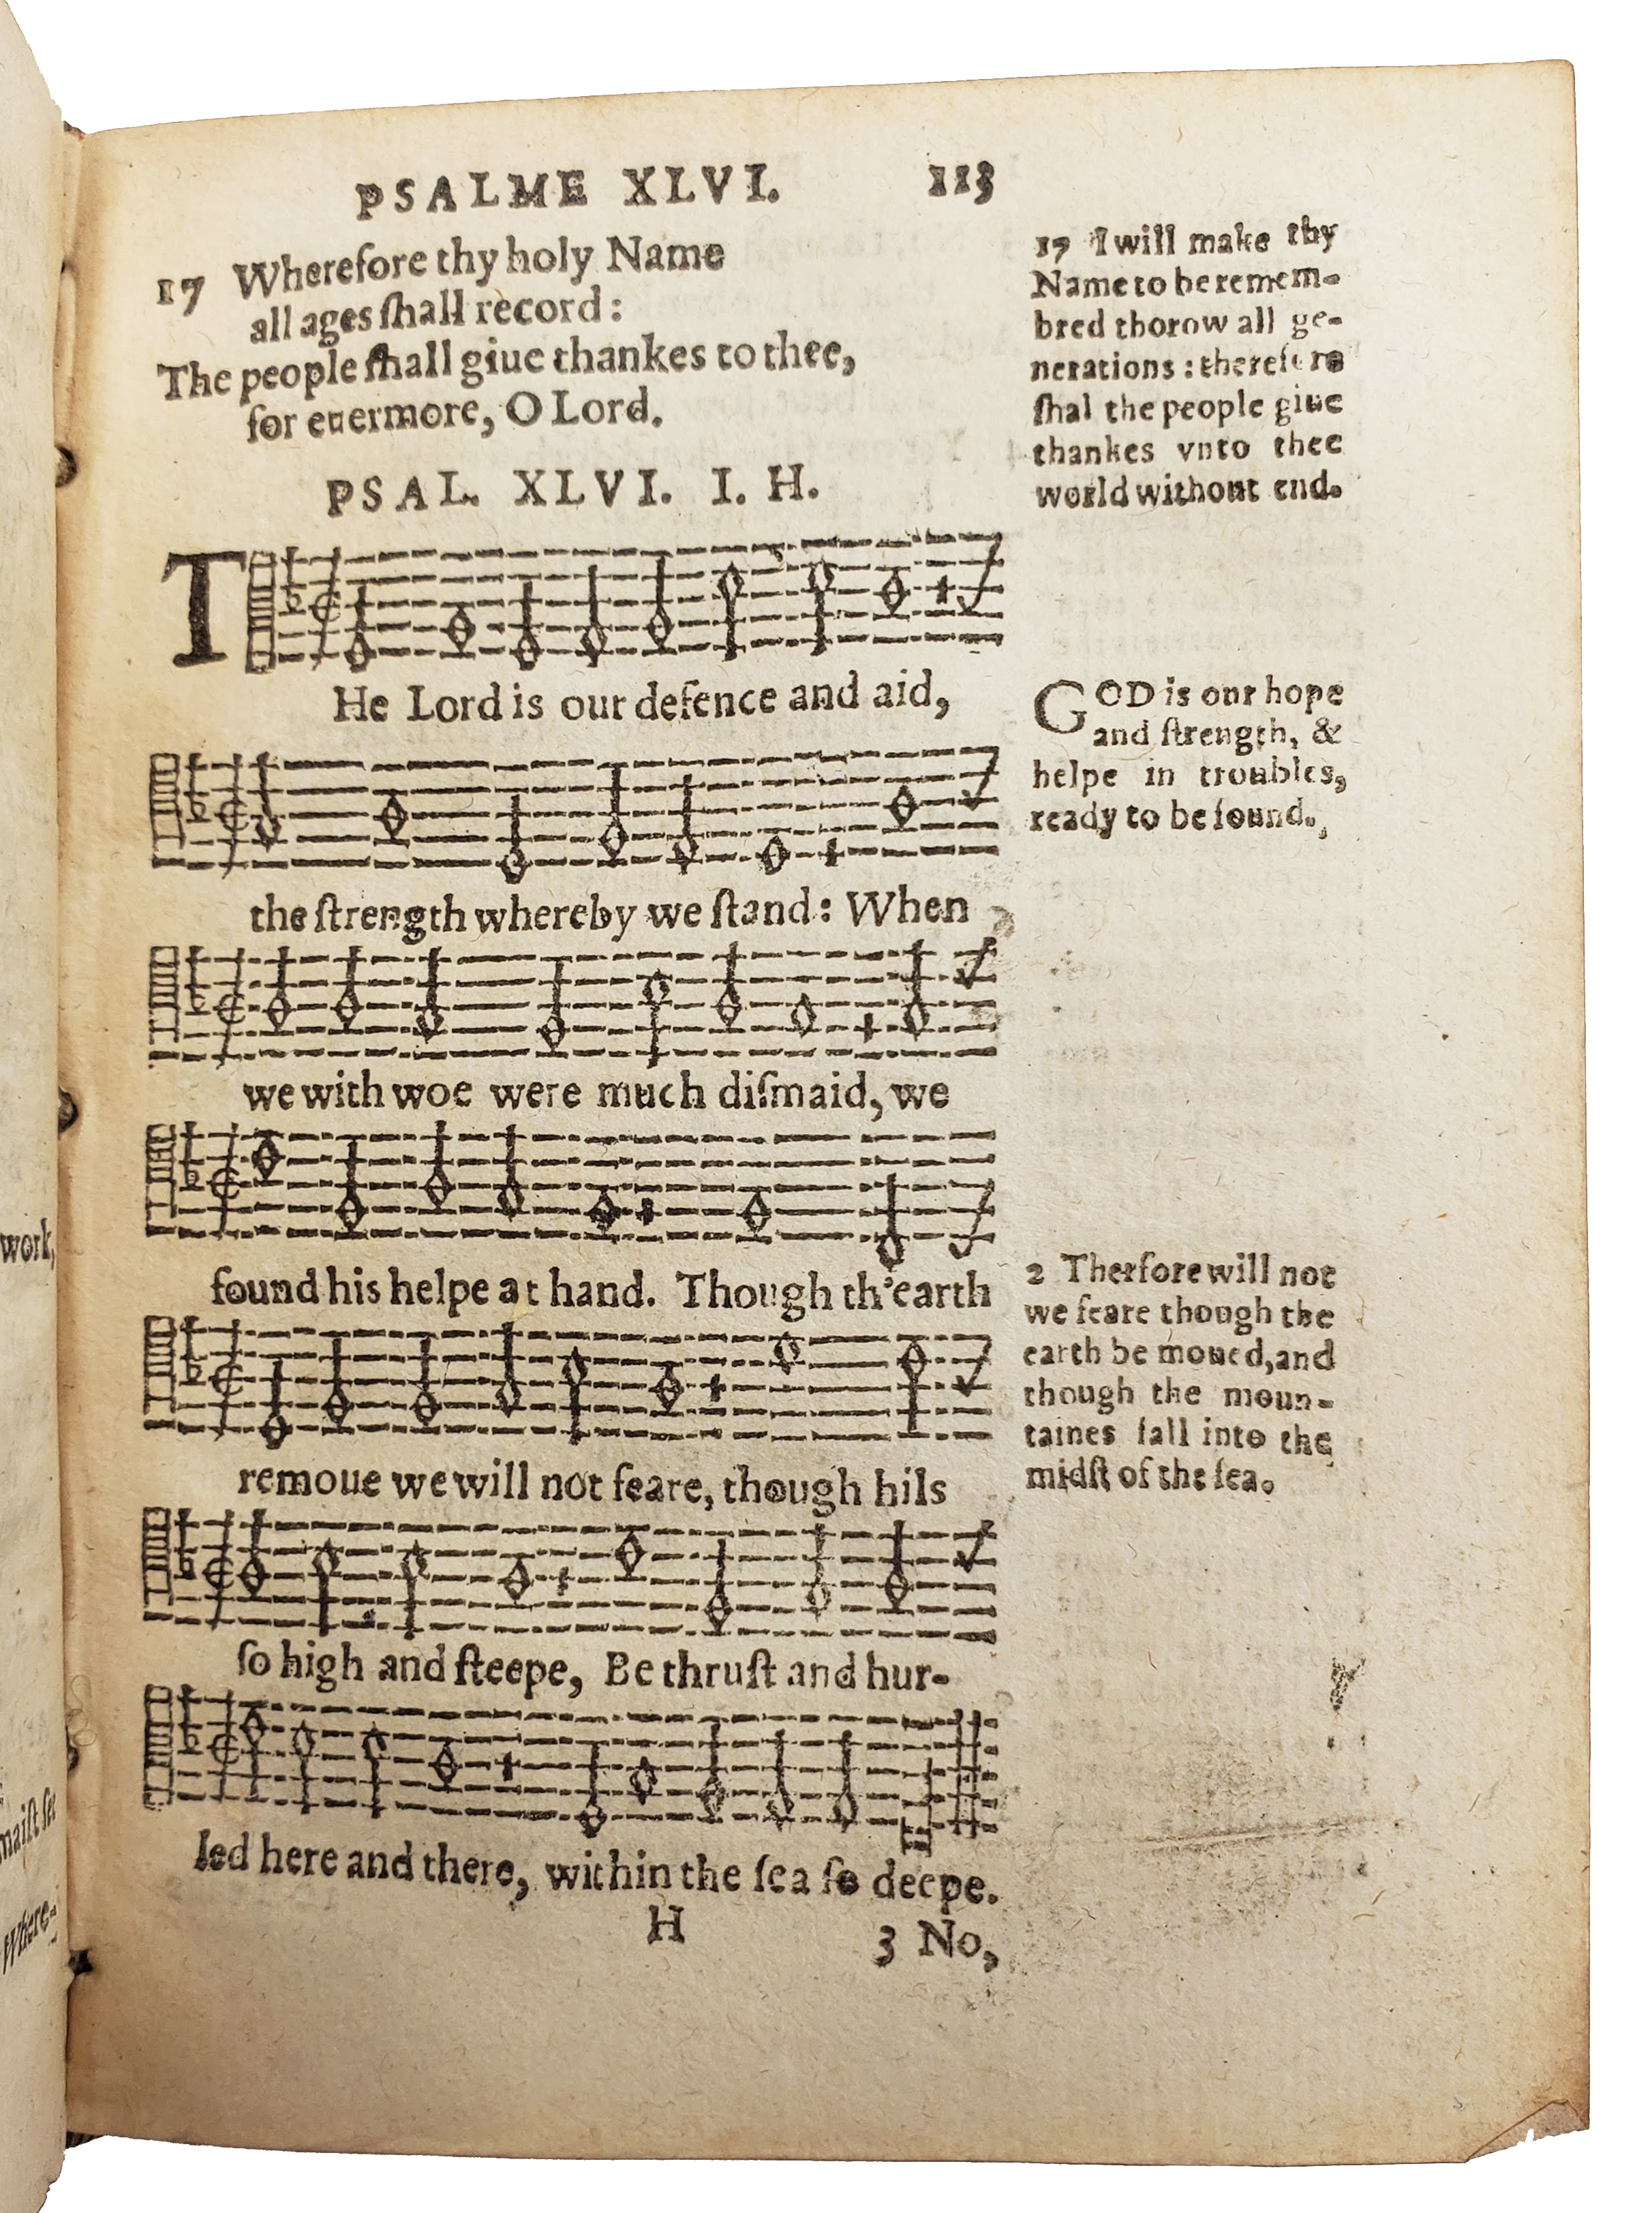 PSALME XLVI. 113
17 Wherefore thy holy Name
all ages ſhall record:
The people ſhall giue thankes to thee,
for euermore, O Lord.
PSAL. XLVI. I. H.
THe Lord is our defence and aid,
the ſtrength whereby we ſtand: When
we with woe were much diſmaid, we
found his helpe at hand. Though th'earth
remoue we will not feare, though hils
ſo high and ſteepe, Be thruſt and hur-
led here and there, within the ſea ſo deepe.
H 3 No,
17 I will make thy
Name to be remem-
bred thorow all ge-
nerations: therefore
ſhal the people giue
thankes vnto thee
world without end.
GOD is our hope
and ſtrength, &
helpe in troubles,
ready to be found.
2 Therfore will not
we feare though the
earth be moued, and
though the moun-
taines fall into the
midſt of the ſea.
work,
maiſt
Where-